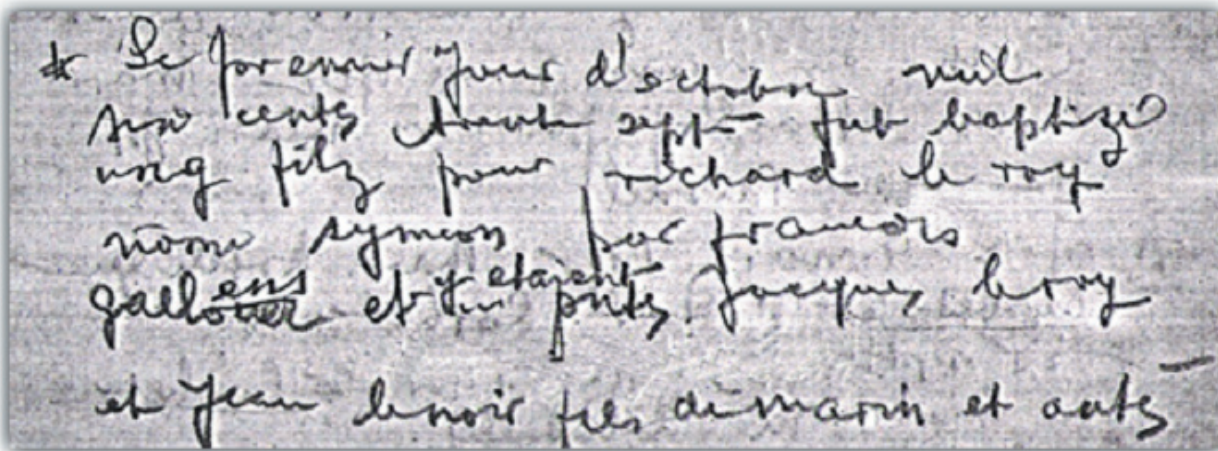 * Le premier jour d'octobre mil
six cents trente sept fut baptizé
ung filz pour richard le roy
nomé symeon par francois
et y etaient pnts. Jacques leroy
et Jean lenoir fils de marin et aults